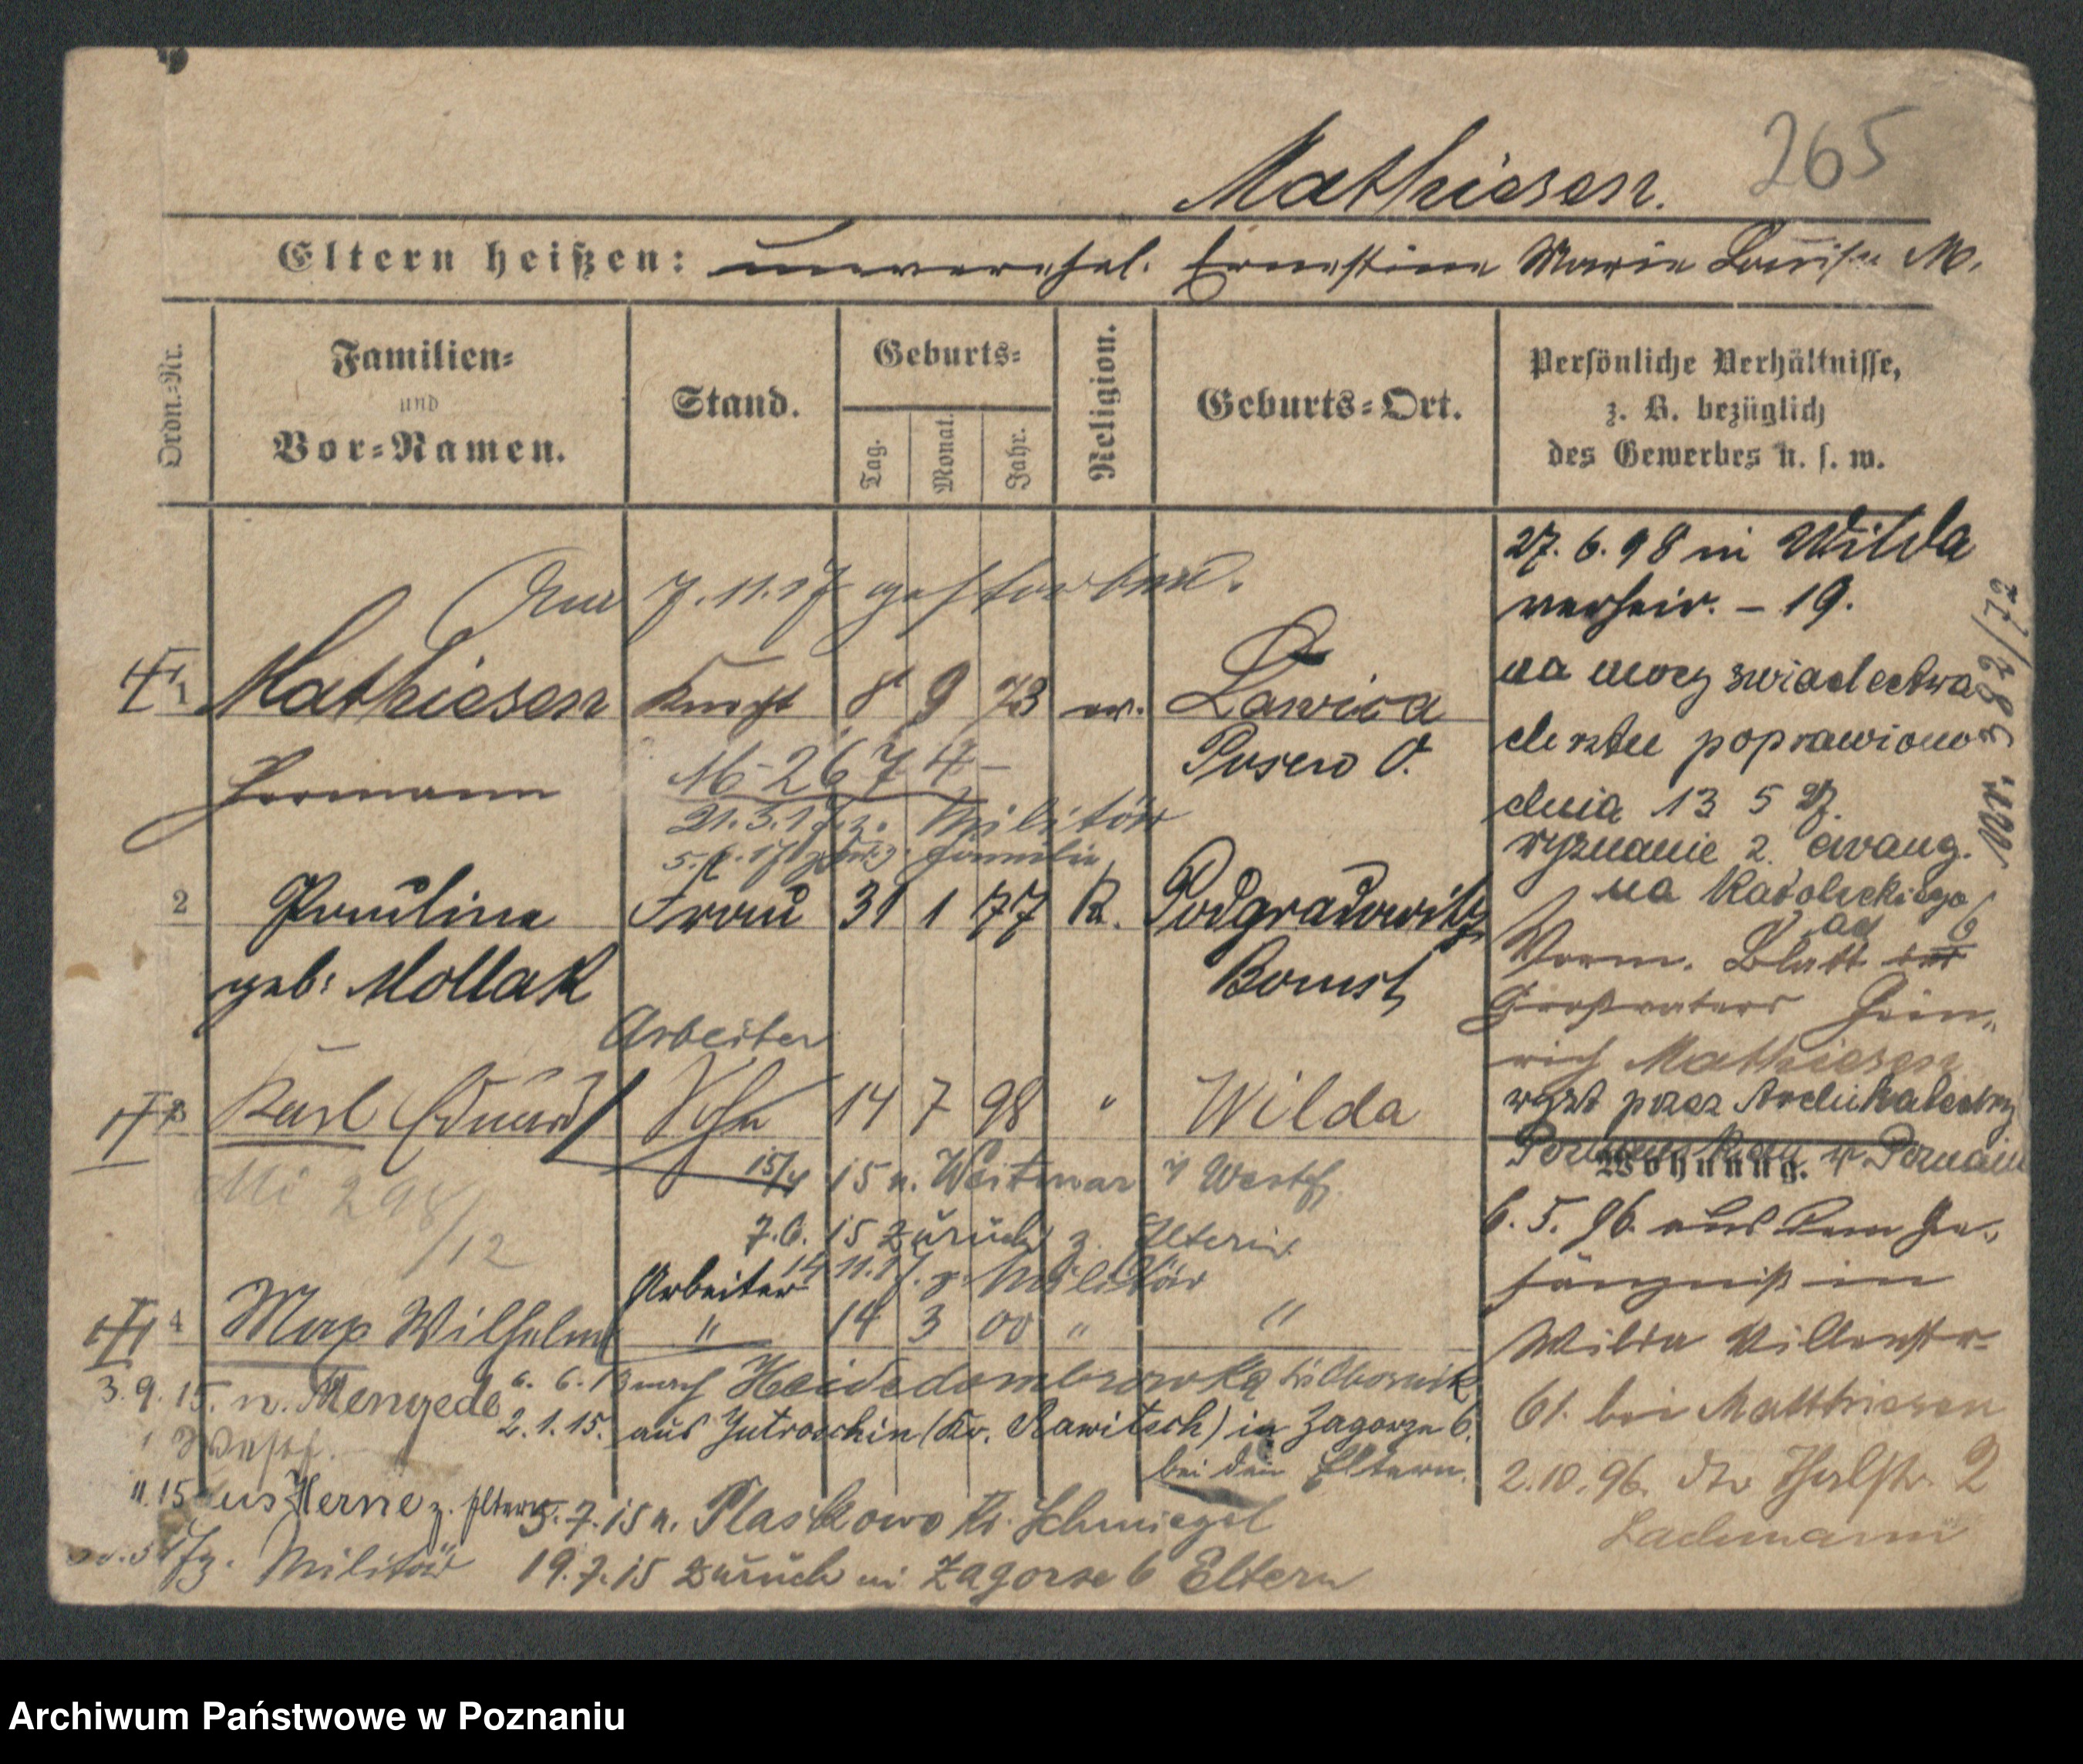 265
Mathiesen.
Eltern heißen: unverehel. Ernestine Marie Louise M.
Ordn.-Nr.
Familien- und Vor-Namen.
Stand.
Geburts-
Tag. Monat. Jahr.
Religion.
Geburts-Ort.
Persönliche Verhältnisse,
z. B. bezüglich
des Gewerbes u. s. w.
7.11.17 gestorben.
1 Mathiesen Knecht 8 9 73 ev. Lawica
Hermann
Posen O.
M-2674-
21.3.17 z. Militär
Familie
2 Pauline Frau 31 1 77 K. Podgradowitz
geb: Mollak
Bomst
Arbeiter
3 Karl Eduard Sohn 14 7 98 " Wilda
15/4 15 n. Weitmar i/ Westf.
Mi 298/12
7.6.15 zurück z. Eltern
14.11.17. z. Militär
Arbeiter
4 Max Wilhelm " 14 3 00 " "
3.9.15. n. Mengede
Westf.
6.6.13 nach Heidedombrowka
2.1.15. aus Jutroschin (Kr. Rawitsch) in Zagorze 6.
bei den Eltern.
11.15 aus Herne z. Eltern
5.7.15 n. Plaskowo Kr. Schmiegel
z. Militär
19.7.15 zurück in Zagorze 6 Eltern
27.6.98 in Wilda
verheir. – 19.
na mocy swiadectwa
chrztu poprawiono
dnia 13 5 27.
wyznanie z ewang.
na katolickiego
Vorm. Blatt
Großvaters Hein-
rich Mathiesen
wyst przez
w Poznaniu
Nr. 382/72
Wohnung.
6.5.96. aus dem Ge-
fängniß in
Wilda Villenstr.
61. bei Matthiesen
2.10.96. 2
Lachmann
Archiwum Państwowe w Poznaniu